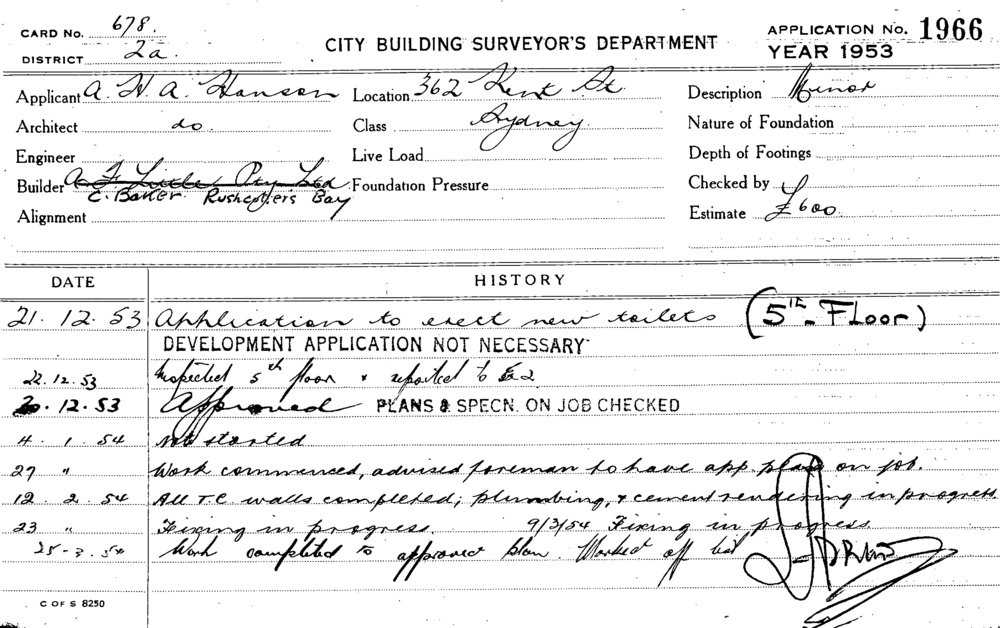 CARD No. 678.
DISTRICT 2a.
CITY BUILDING SURVEYOR'S DEPARTMENT
APPLICATION No. 1966
YEAR 1953
Applicant A. H. A. Hanson Location 362 Kent St. Description Minor
Architect do. Class Sydney. Nature of Foundation
Engineer Live Load Depth of Footings
Builder A F Little Pty Ltd. Foundation Pressure Checked by
C. Baker Rushcutters Bay
Alignment Estimate £600
DATE HISTORY
21.12.53 Application to erect new toilets (5th Floor)
DEVELOPMENT APPLICATION NOT NECESSARY
22.12.53 Inspected 5th floor & reported to
.12.53 Approved PLANS & SPECN. ON JOB CHECKED
4.1.54 Not started
27 " Work commenced, advised foreman to have app. plan on job.
12.2.54 All T.C. walls completed; plumbing, & cement rendering in progress
23 " Fixing in progress. 9/3/54 Fixing in progress
25-3.54 Work completed to approved plan. Marked off list
C OF S 8250